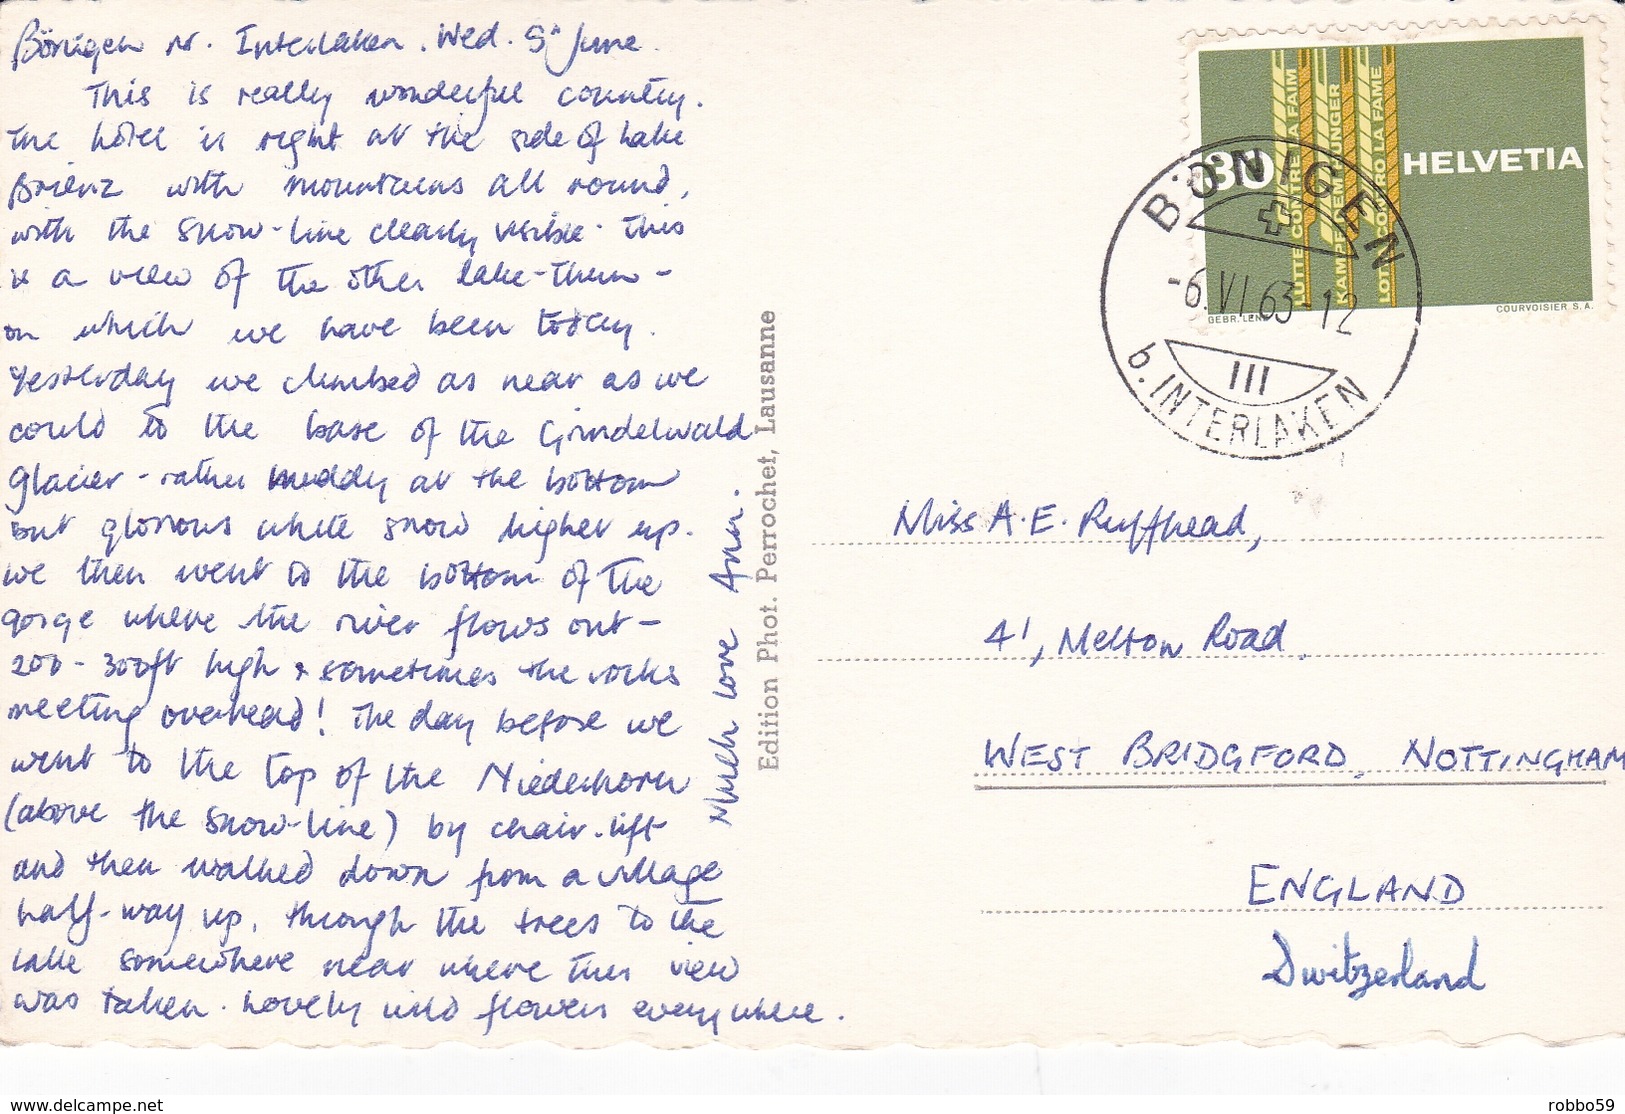 Bönigen nr. Interlaken. Wed. 5th June.
This is really wonderful country.
The hotel is right at the side of Lake
Brienz with mountains all round,
with the snow-line clearly visible. This
is a view of the other lake - Thun -
on which we have been today.
Yesterday we climbed as near as we
could to the base of the Grindelwald
Glacier - rather muddy at the bottom
but glorious white snow higher up.
We then went to the bottom of the
gorge where the river flows out -
200 - 300ft high & sometimes the rocks
meeting overhead! The day before we
went to the top of the Niederhorn
(above the snow-line) by chair-lift
and then walked down from a village
half-way up, through the trees to the
lake somewhere near where this view
was taken. Lovely wild flowers everywhere.
Much love Ann.
Edition Phot. Perrochet, Lausanne
80
HELVETIA
LUTTE CONTRE LA FAIM
KAMPF DEM HUNGER
LOTTA CONTRO LA FAME
GEBR. LENZ
COURVOISIER S.A.
BÖNIGEN
-6.VI.63-12
III
b. INTERLAKEN
Miss A. E. Ruffhead,
41, Melton Road,
WEST BRIDGFORD, NOTTINGHAM
ENGLAND
Switzerland
www.delcampe.net
robbo59